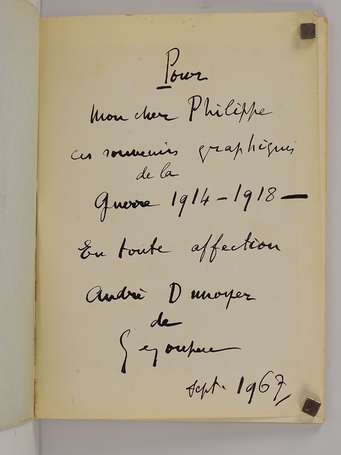 Pour
mon cher Philippe
ces souvenirs graphiques
de la
Guerre 1914-1918 —
En toute affection
André Dunoyer
de
Segonzac
Sept. 1967